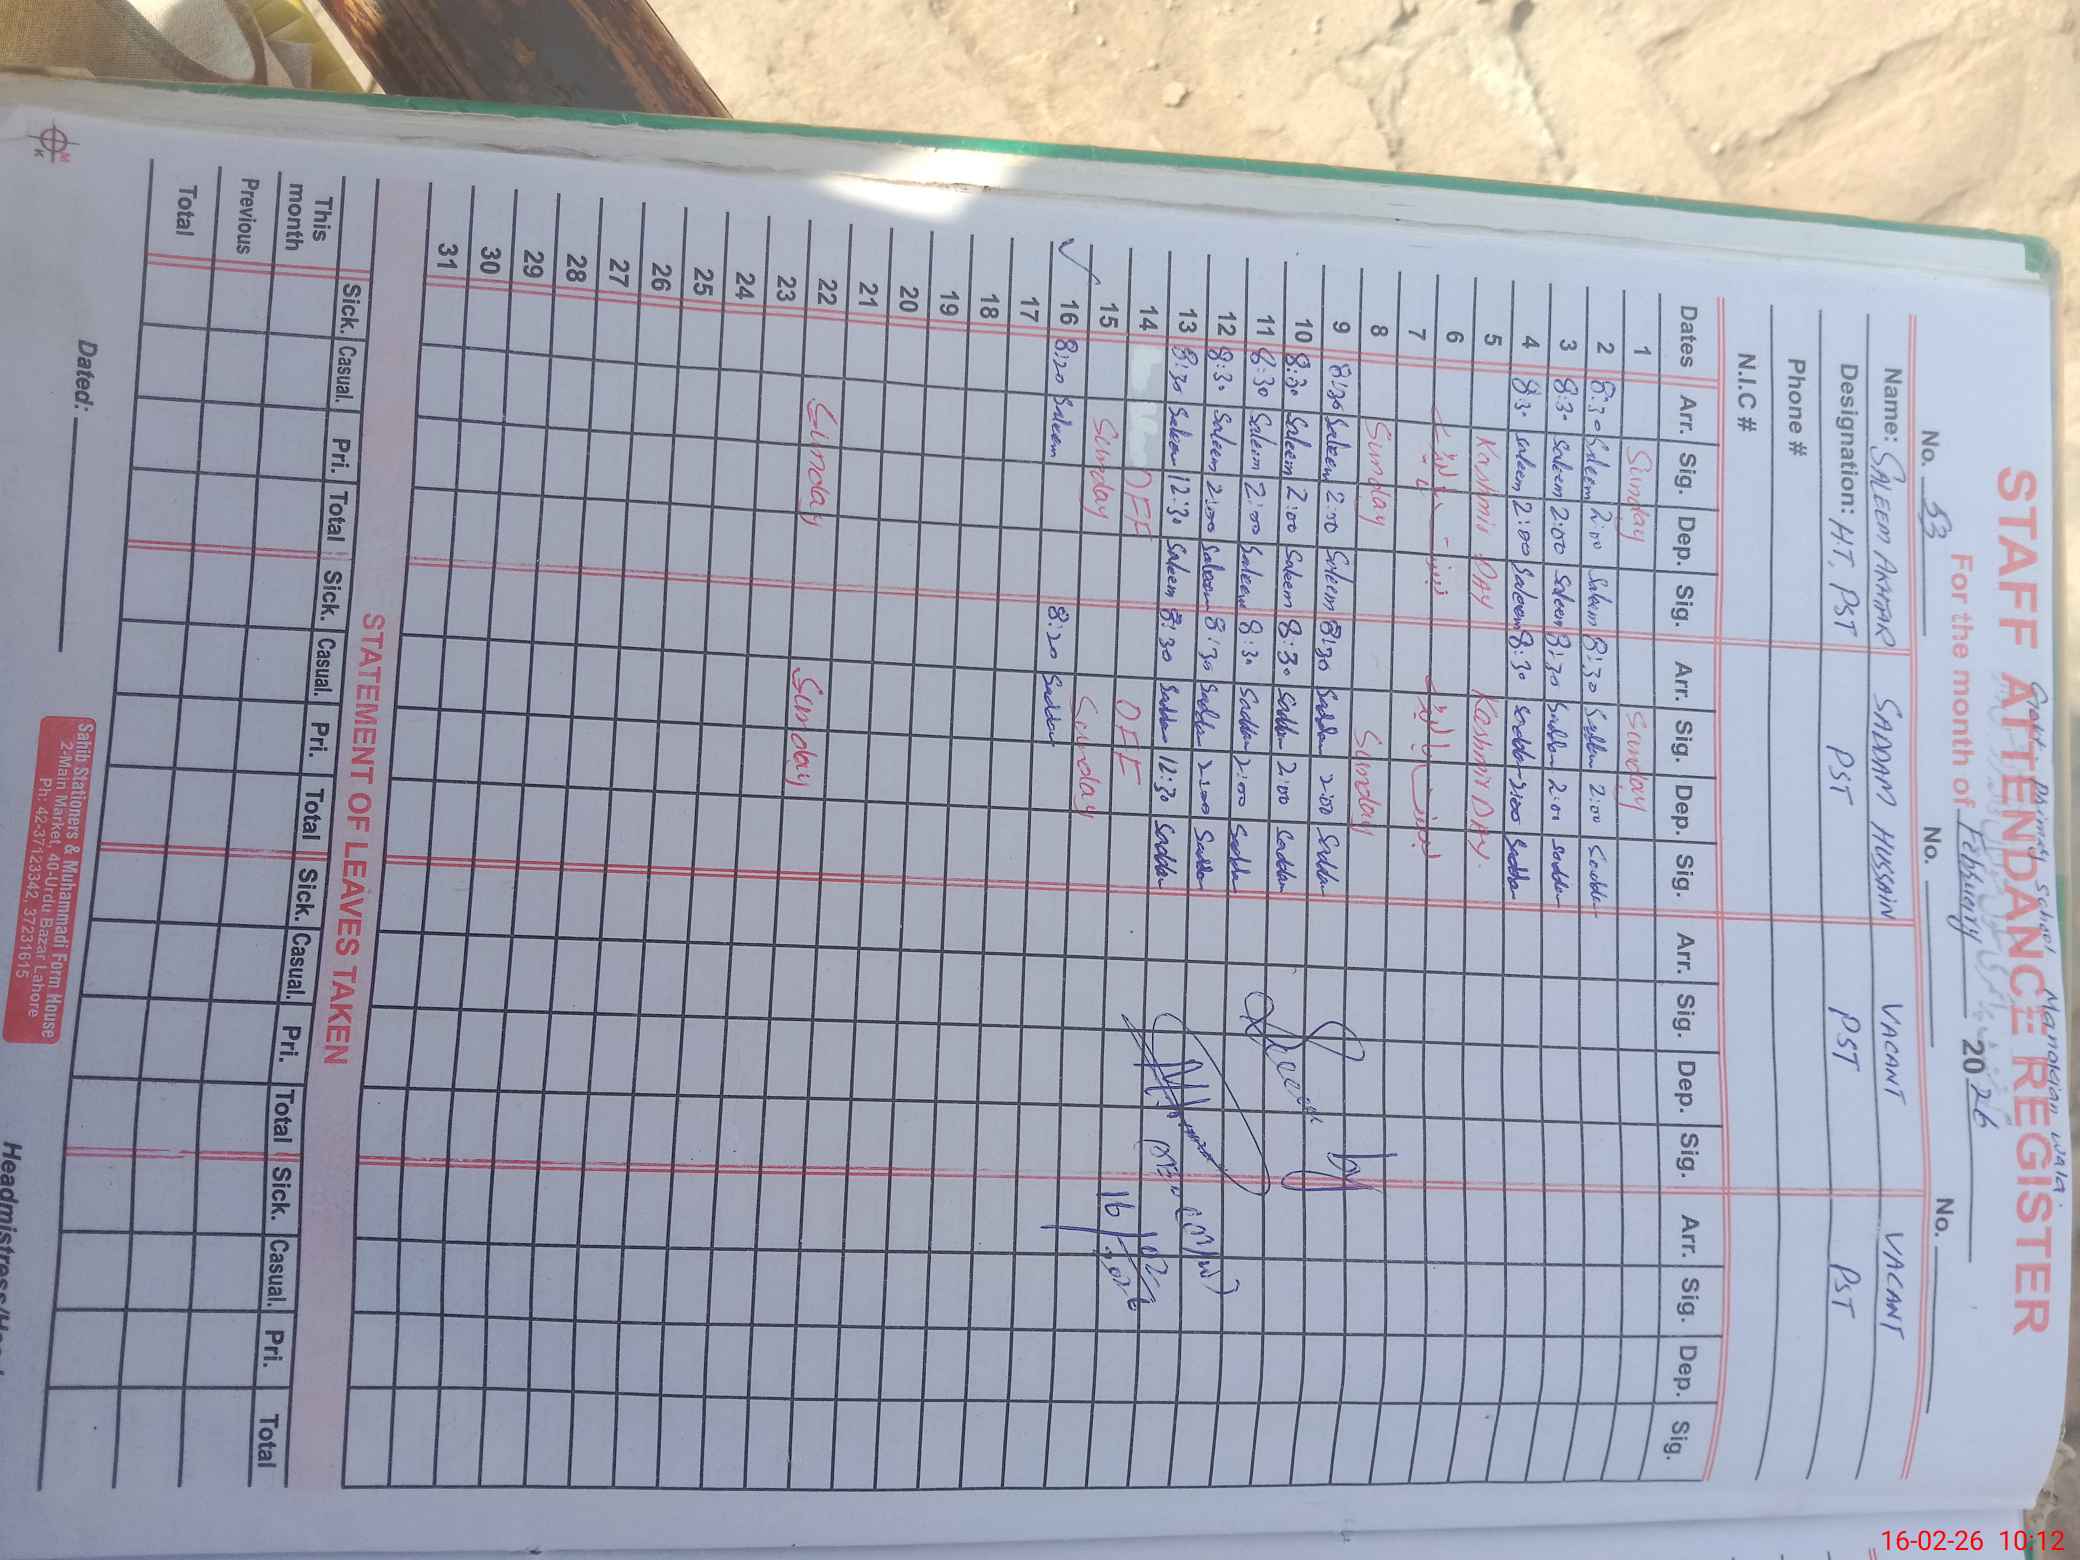 Govt: Primary School Manakian wala
STAFF ATTENDANCE REGISTER
For the month of February 2026
No. 53 No. No.
Name: SALEEM AKHTAR SADDAM HUSSAIN VACANT VACANT
Designation: H.T, PST PST PST PST
Phone #
N.I.C #
Dates Arr. Sig. Dep. Sig. Arr. Sig. Dep. Sig. Arr. Sig. Dep. Sig. Arr. Sig. Dep. Sig.
1 Sunday Sunday
2 8:30 Saleem 2:00 Saleem 8:30 Saddam 2:00 Saddam
3 8:30 Saleem 2:00 Saleem 8:30 Saddam 2:00 Saddam
4 8:30 Saleem 2:00 Saleem 8:30 Saddam 2:00 Saddam
5 Kashmir DAY Kashmir DAY.
6
7
8 Sunday Sunday
9 8:30 Saleem 2:00 Saleem 8:30 Saddam 2:00 Saddam
10 8:30 Saleem 2:00 Saleem 8:30 Saddam 2:00 Saddam
11 8:30 Saleem 2:00 Saleem 8:30 Saddam 2:00 Saddam
12 8:30 Saleem 2:00 Saleem 8:30 Saddam 2:00 Saddam
13 8:30 Saleem 12:30 Saleem 8:30 Saddam 12:30 Saddam
14 OFF OFF
15 Sunday Sunday
16 8:20 Saleem 8:20 Saddam
17
18
19
20
21
22 Sunday Sunday
23
24
25
26
27
28
29
30
31
STATEMENT OF LEAVES TAKEN
Sick. Casual. Pri. Total Sick. Casual. Pri. Total Sick. Casual. Pri. Total Sick. Casual. Pri. Total
This month
Previous
Total
Dated:
Sahib Stationers & Muhammadi Form House
2-Main Market, 40-Urdu Bazar Lahore
Ph: 42-37123342, 37231615
16-02-26 10:12